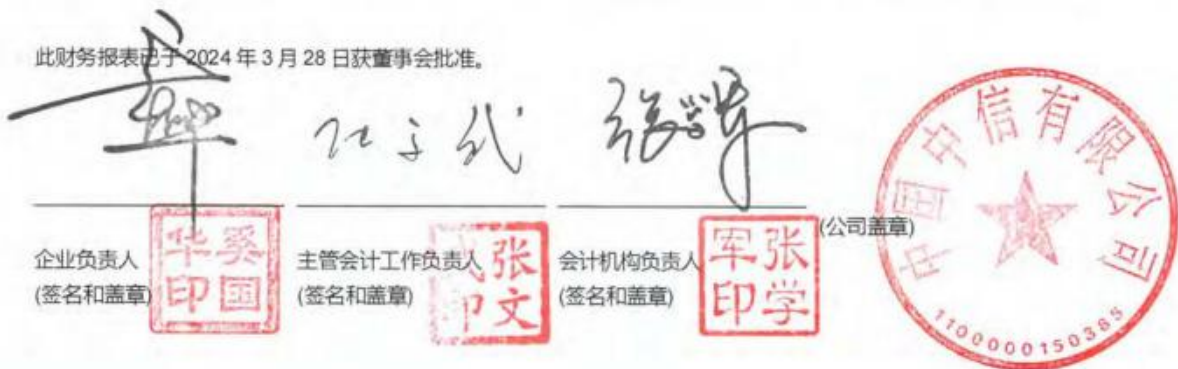 此财务报表已于 2024 年 3 月 28 日获董事会批准。
企业负责人
(签名和盖章)
奚国华印
主管会计工作负责人
(签名和盖章)
张文武印
会计机构负责人
(签名和盖章)
张学军印
(公司盖章)
中国中信有限公司
1100000150385